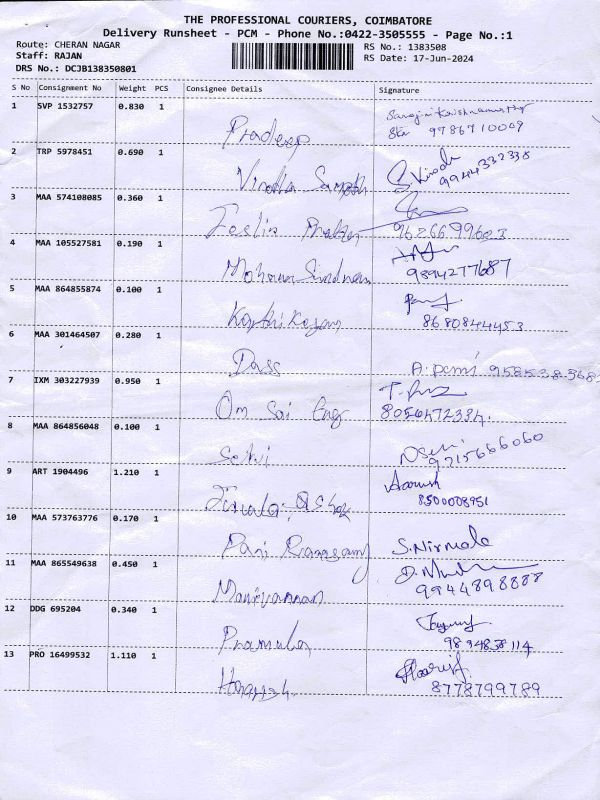 THE PROFESSIONAL COURIERS, COIMBATORE
Delivery Runsheet - PCM - Phone No.:0422-3505555 - Page No.:1
Route: CHERAN NAGAR
Staff: RAJAN
DRS No.: DCJB138350801
RS No.: 1383508
RS Date: 17-Jun-2024
S No Consignment No Weight PCS Consignee Details Signature
1 SVP 1532757 0.830 1
Pradeep
9786710009
2 TRP 5978451 0.690 1
9944332338
3 MAA 574108085 0.360 1
9626699603
4 MAA 105527581 0.190 1
9894277687
5 MAA 864855874 0.100 1
8680844453
6 MAA 301464507 0.280 1
Dass
7 IXM 303227939 0.950 1
Om Sai Eng
8056472334.
8 MAA 864856048 0.100 1
Selvi
9715666060
9 ART 1904496 1.210 1
8500008951
10 MAA 573763776 0.170 1
S.Nirmala
11 MAA 865549638 0.450 1
Manivannan
9944898888
12 DDG 695204 0.340 1
Pramala
9894838114
13 PRO 16499532 1.110 1
8778799789